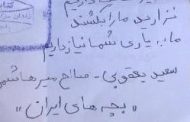 نزارید ما را بکشند
ما به یاری شما نیاز داریم
سعید یعقوبی - صالح میرهاشمی
"بچه های ایران"